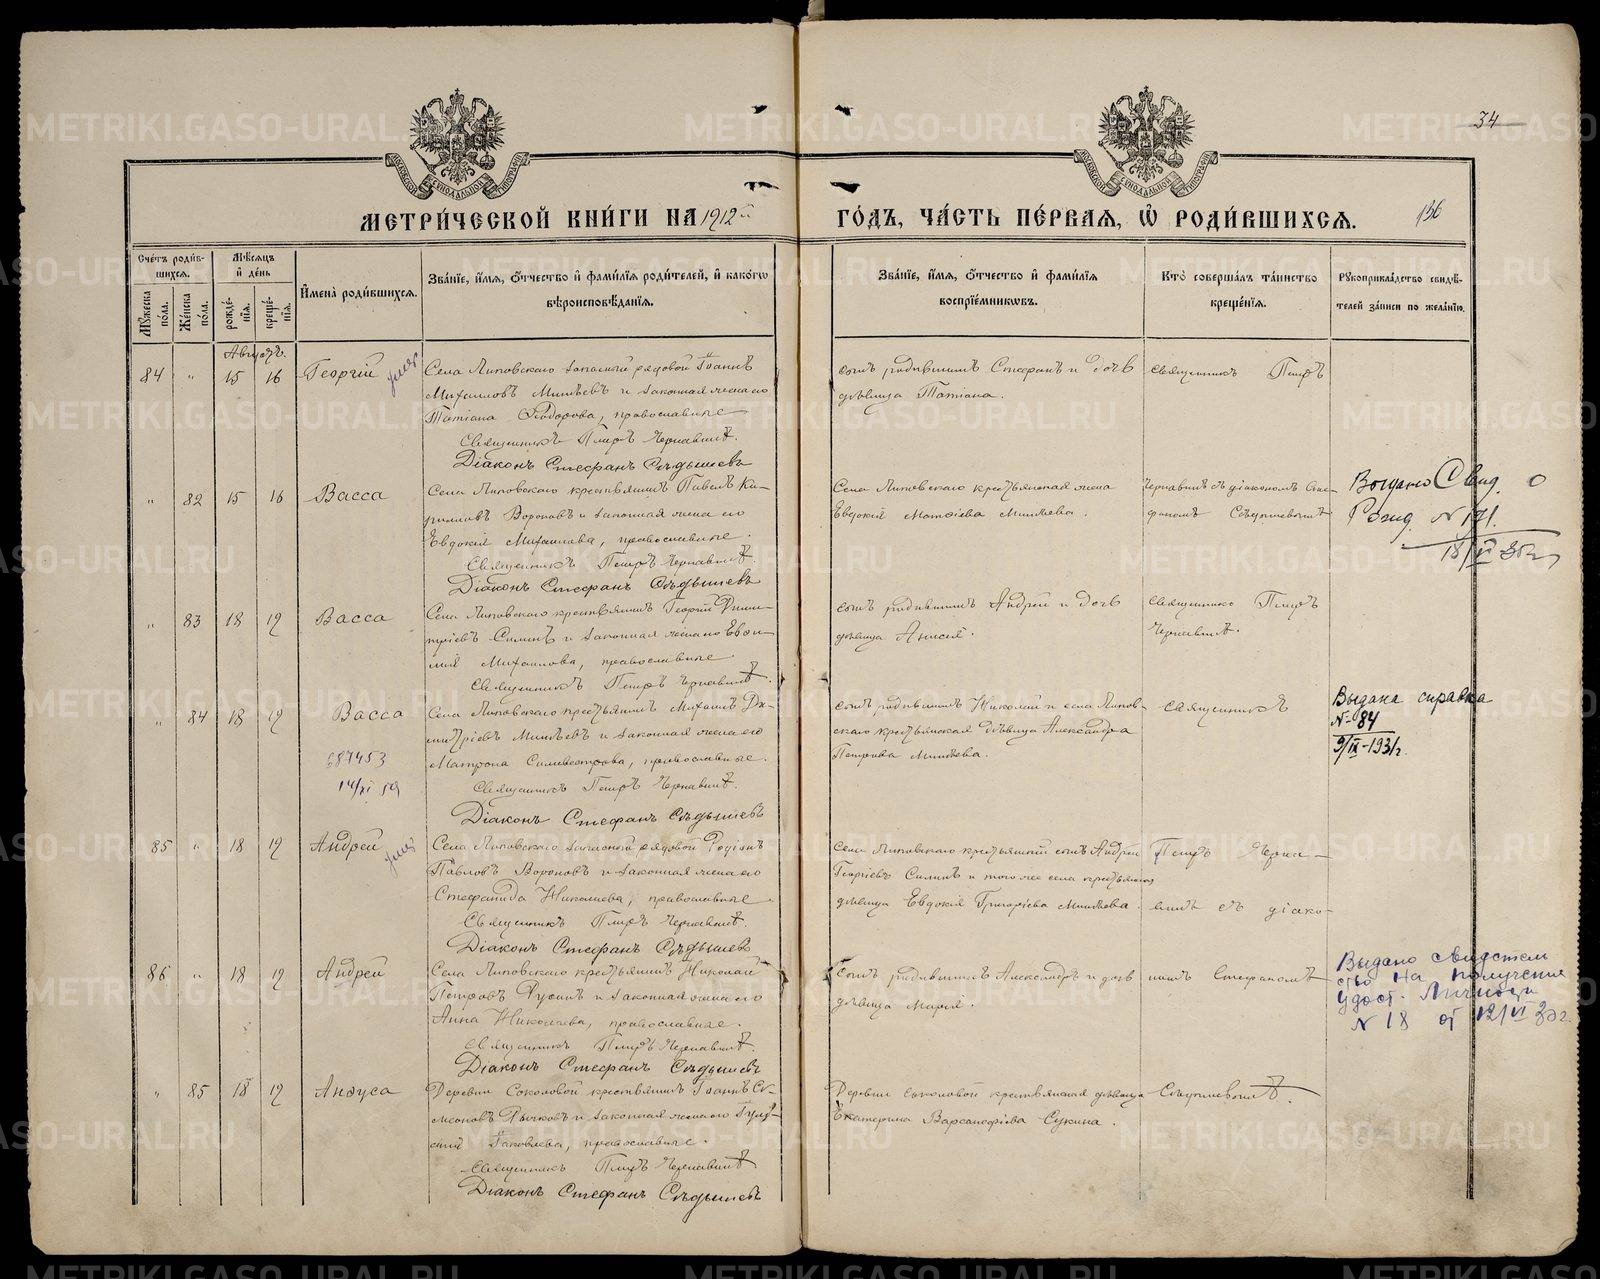 34
МЕТРИ́ЧЕСКОЙ КНИ́ГИ НА 1912й
ГО́ДЪ, ЧА́СТЬ ПЕ́РВАЯ, Ѡ РОДИ́ВШИХСЯ.
136
Сче́тъ роди́в-
шихся.
Мѣ́сяцъ
и де́нь
Му́жеска по́ла.
Же́нска по́ла.
рожде́нїя.
креще́нїя.
И҆мена̀ роди́вшихся.
Зва́нїе, и҆́мя, ѻ҆́тчество и҆ фами́лїя роди́телей, и҆ како́гѡ
вѣроисповѣ́данїя.
Зва́нїе, и҆́мя, ѻ҆́тчество и҆ фами́лїя
воспрїе́мникѡвъ.
Кто̀ соверша́лъ та́инство
креще́нїя.
Рꙋкоприкла́дство свидѣ́-
телей за́писи по жела́нїю.
Августъ.
84 " 15 16 Георгій умер
Села Липовскаго запасный рядовой Іоаннъ
Михаиловъ Минѣевъ и законная жена его
Татіана Ѳеодорова, православные
Священникъ Петръ Чернавинъ.
Діаконъ Стефанъ Сѣдышевъ
сынъ родившихъ Стефанъ и дочь
дѣвица Татіана.
священникъ Петръ
" 82 15 16 Васса
Села Липовскаго крестьянинъ Павелъ Ки-
рилловъ Вороновъ и законная жена его
Евдокія Михаилова, православные.
Священникъ Петръ Чернавинъ.
Діаконъ Стефанъ Сѣдышевъ
Села Липовскаго крестьянская жена
Евдокія Матѳіева Минѣева.
Чернавинъ съ діакономъ Сте-
фаномъ Сѣдышевымъ
Выдано Свид. о
Рожд. № 191.
18/VI 35г
" 83 18 19 Васса
Села Липовскаго крестьянинъ Георгій Дими-
тріевъ Силинъ и законная жена его Евѳи-
мія Михаилова, православные.
Священникъ Петръ Чернавинъ.
сынъ родившихъ Андрей и дочь
дѣвица Анисія.
Священникъ Петръ
Чернавинъ.
" 84 18 19 Васса
687453
14/XI 59
Села Липовскаго крестьянинъ Михаилъ Ди-
митріевъ Минѣевъ и законная жена его
Матрона Силивестрова, православные.
Священникъ Петръ Чернавинъ.
Діаконъ Стефанъ Сѣдышевъ
сынъ родившихъ Николай и села Липов-
скаго крестьянская дѣвица Александра
Петрова Минѣева.
священникъ
Выдана справка
№ 84
9/IX-1931г.
85 " 18 19 Андрей умер
Села Липовскаго запасный рядовой Родіонъ
Павловъ Вороновъ и законная жена его
Стефанида Николаева, православные
Священникъ Петръ Чернавинъ.
Діаконъ Стефанъ Сѣдышевъ
Села Липовскаго крестьянскій сынъ Андрей
Георгіевъ Силинъ и того же села крестьянская
дѣвица Евдокія Григоріева Минѣева.
Петръ Черна-
винъ съ діако-
86 " 18 19 Андрей
Села Липовскаго крестьянинъ Николай
Петровъ Русинъ и законная жена его
Анна Николаева, православные.
Священникъ Петръ Чернавинъ.
Діаконъ Стефанъ Сѣдышевъ
Сынъ родившихъ Александръ и дочь
дѣвица Марія.
номъ Стефаномъ
Выдано свидетель
ство на получение
Удост. Личности
№ 18 от 12/VI 32г.
" 85 18 19 Ануса
Деревни Соколовой крестьянинъ Іоаннъ Си-
меоновъ Рычковъ и законная жена его Іулі-
анія Іаковлева, православные.
Священникъ Петръ Чернавинъ
Діаконъ Стефанъ Сѣдышевъ
Деревни Соколовой крестьянская дѣвица
Екатерина Варсанофіева Сукина.
Сѣдышевымъ.